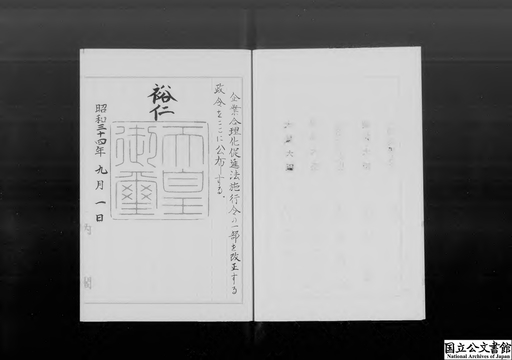 企業合理化促進法施行令の一部を改正する
政令をここに公布する。
裕仁
天皇
御璽
昭和三十四年九月一日
国立公文書館
National Archives of Japan